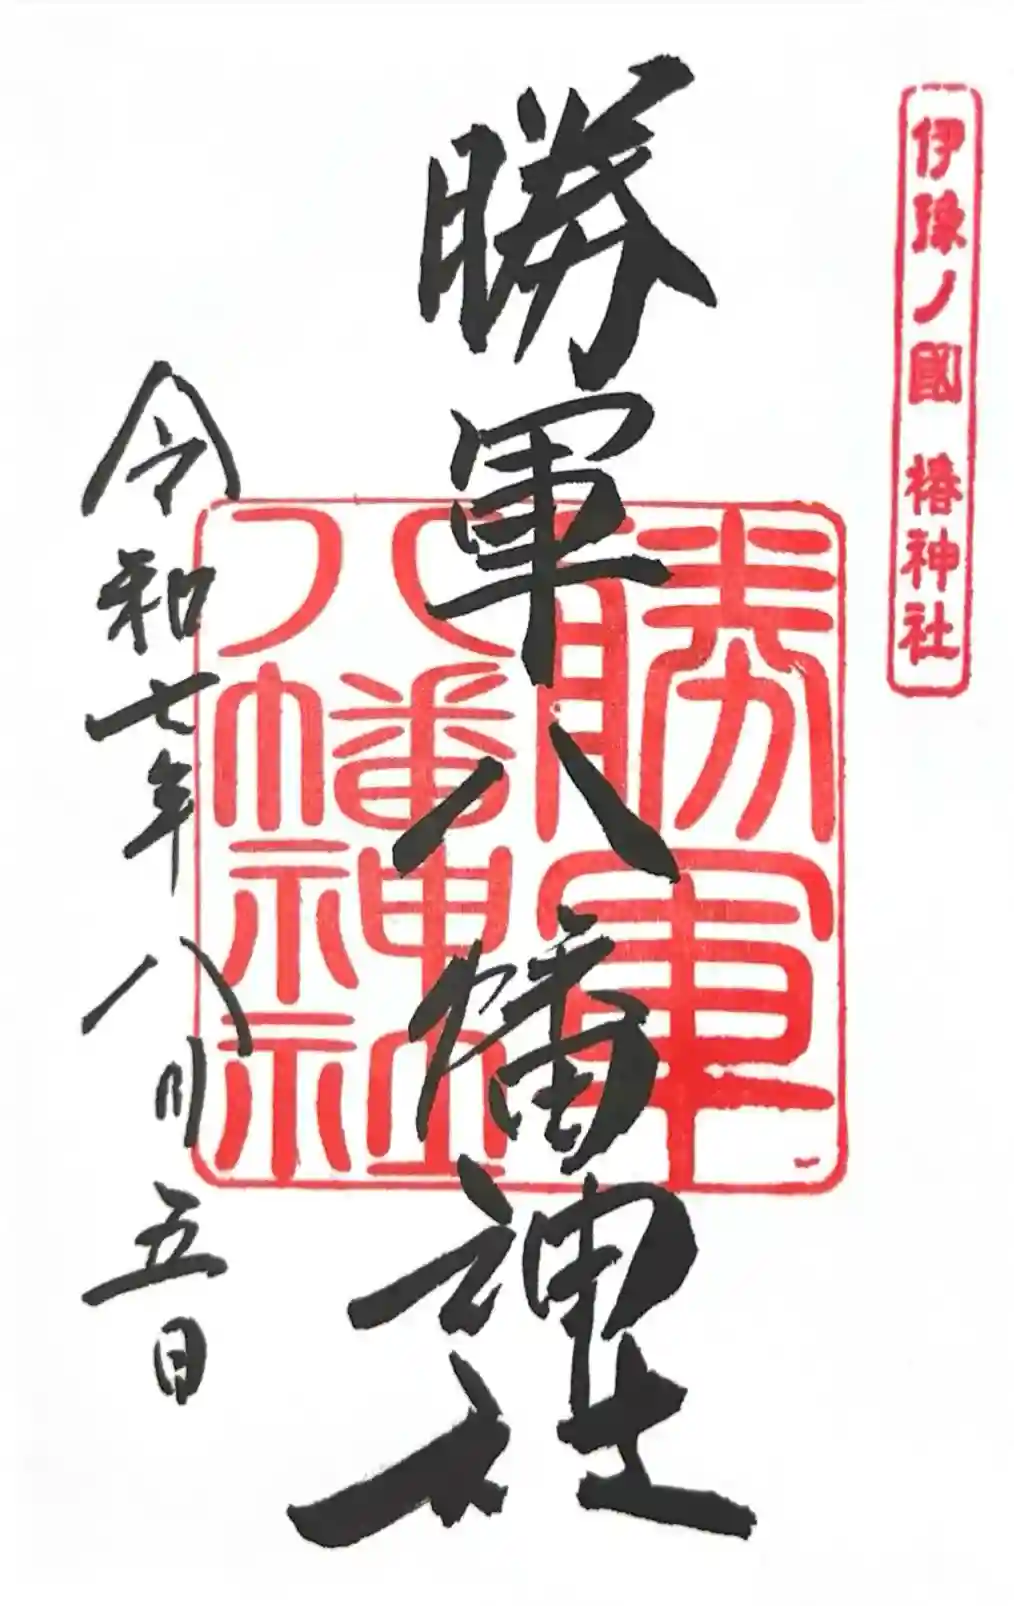 伊豫ノ國 椿神社
勝軍八幡神社
勝軍
八幡神社
令和七年八月五日